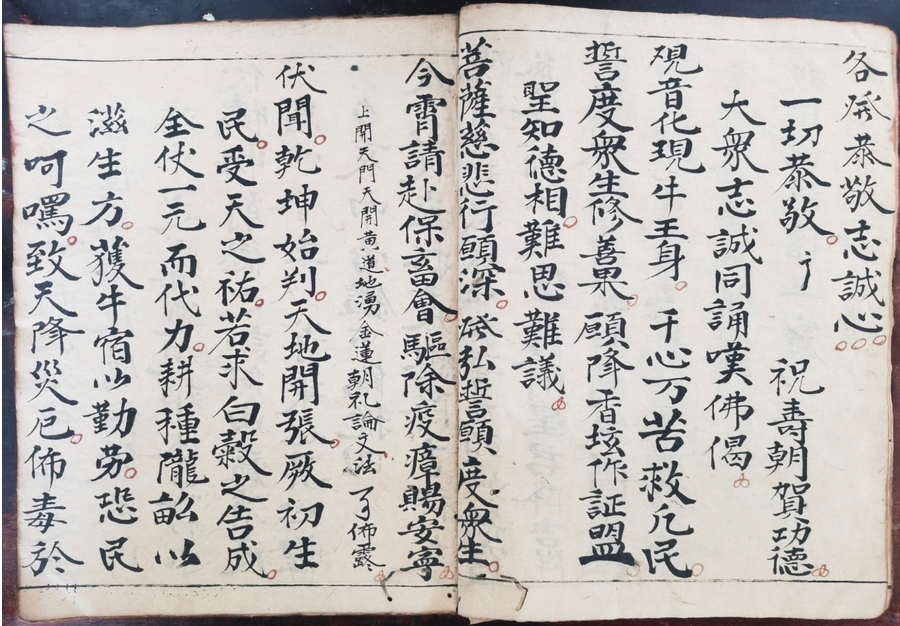 各發恭敬志誠心
一切恭敬 祝壽朝賀功德
大衆志誠同誦嘆佛偈
覌音化現牛王身 千心万苦救凡民
誓度衆生修善果 願降香壇作証盟
聖知德相難思難議
菩薩慈悲行願深 發弘誓願度衆生
今霄請赴保畜會 驅除疫瘴賜安寧
上開天門天開黄道地湧金蓮朝礼論文法 了佈露
伏聞乾坤始判天地開張厥初生
民受天之祐若求白穀之告成
全仗一元而代力耕種隴畝以
滋生方獲牛宿以勤劳恐民
之呵嘿致天降災厄佈毒於